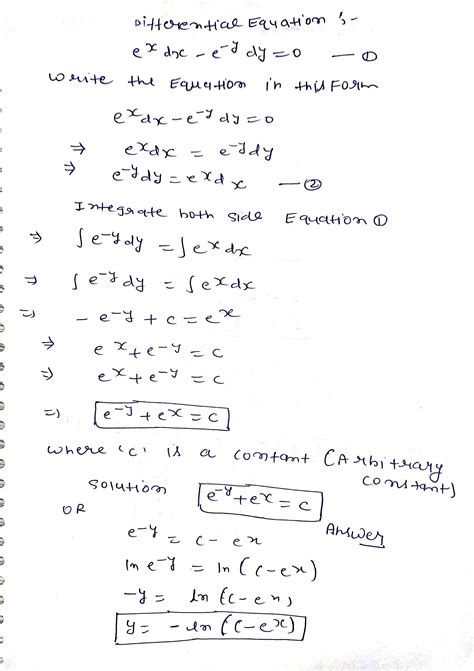 Differential Equation :-
e^x dx - e^-y dy = 0 — ①
Write the Equation in this Form
e^x dx - e^-y dy = 0
⇒ e^x dx = e^-y dy
⇒ e^-y dy = e^x dx — ②
Integrate both side Equation ①
⇒ ∫e^-y dy = ∫e^x dx
⇒ ∫e^-y dy = ∫e^x dx
⇒ - e^-y + c = e^x
⇒ e^x + e^-y = c
⇒ e^x + e^-y = c
⇒ e^-y + e^x = c
where 'c' is a contant (Arbitrary constant)
solution e^-y + e^x = c
OR Answer
e^-y = c - e^x
ln e^-y = ln (c - e^x)
-y = ln (c - e^x)
y = - ln (c - e^x)